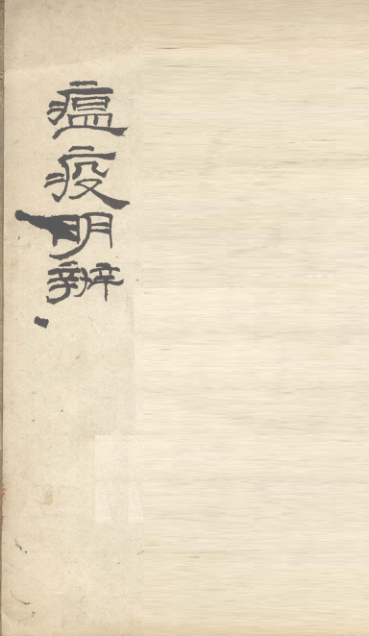 瘟疫明辨